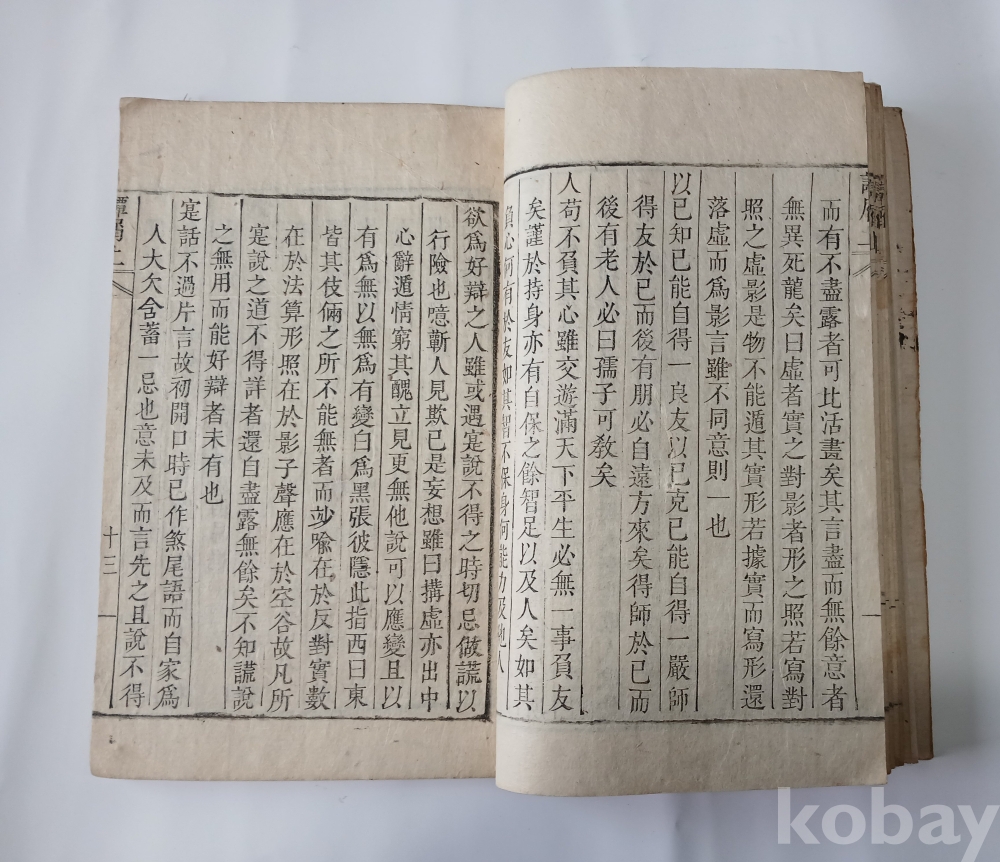 而有不盡露者可比活畫矣其言盡而無餘意者
無異死龍矣曰虛者實之對影者形之照若寫對
照之虛影是物不能遁其實形若據實而寫形還
落虛而爲影言雖不同意則一也
以己知己能自得一良友以己克己能自得一嚴師
得友於己而後有朋必自遠方來矣得師於己而
後有老人必曰孺子可敎矣
人苟不負其心雖交遊滿天下平生必無一事負友
矣謹於持身亦有自保之餘智足以及人矣如其
負心何有於友如其智不保身何能力及他人
欲爲好辯之人雖或遇寔說不得之時切忌做謊以
行險也噫蘄人見欺已是妄想雖曰搆虛亦出中
心辭遁情窮其醜立見更無他說可以應變且以
有爲無以無爲有變白爲黑張彼隱此指西曰東
皆其伎倆之所不能無者而妙喩在於反對實數
在於法算形照在於影子聲應在於空谷故凡所
寔說之道不得詳者還自盡露無餘矣不知謊說
之無用而能好辯者未有也
寔話不過片言故初開口時已作煞尾語而自家爲
人大欠含蓄一忌也意未及而言先之且說不得
十三
kobay